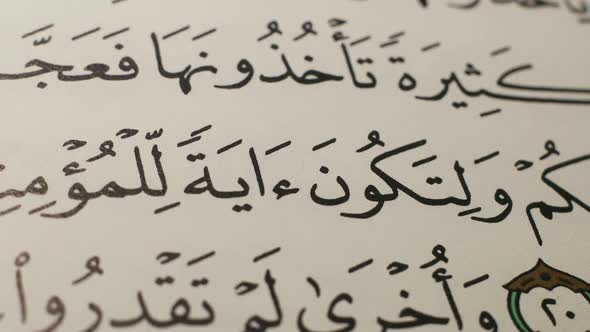 كَثِيرَةً تَأْخُذُونَهَا فَعَجَّ
كُمْ وَلِتَكُونَ ءَايَةً لِّلْمُؤْمِنِ
٢٠ وَأُخْرَىٰ لَمْ تَقْدِرُوا۟